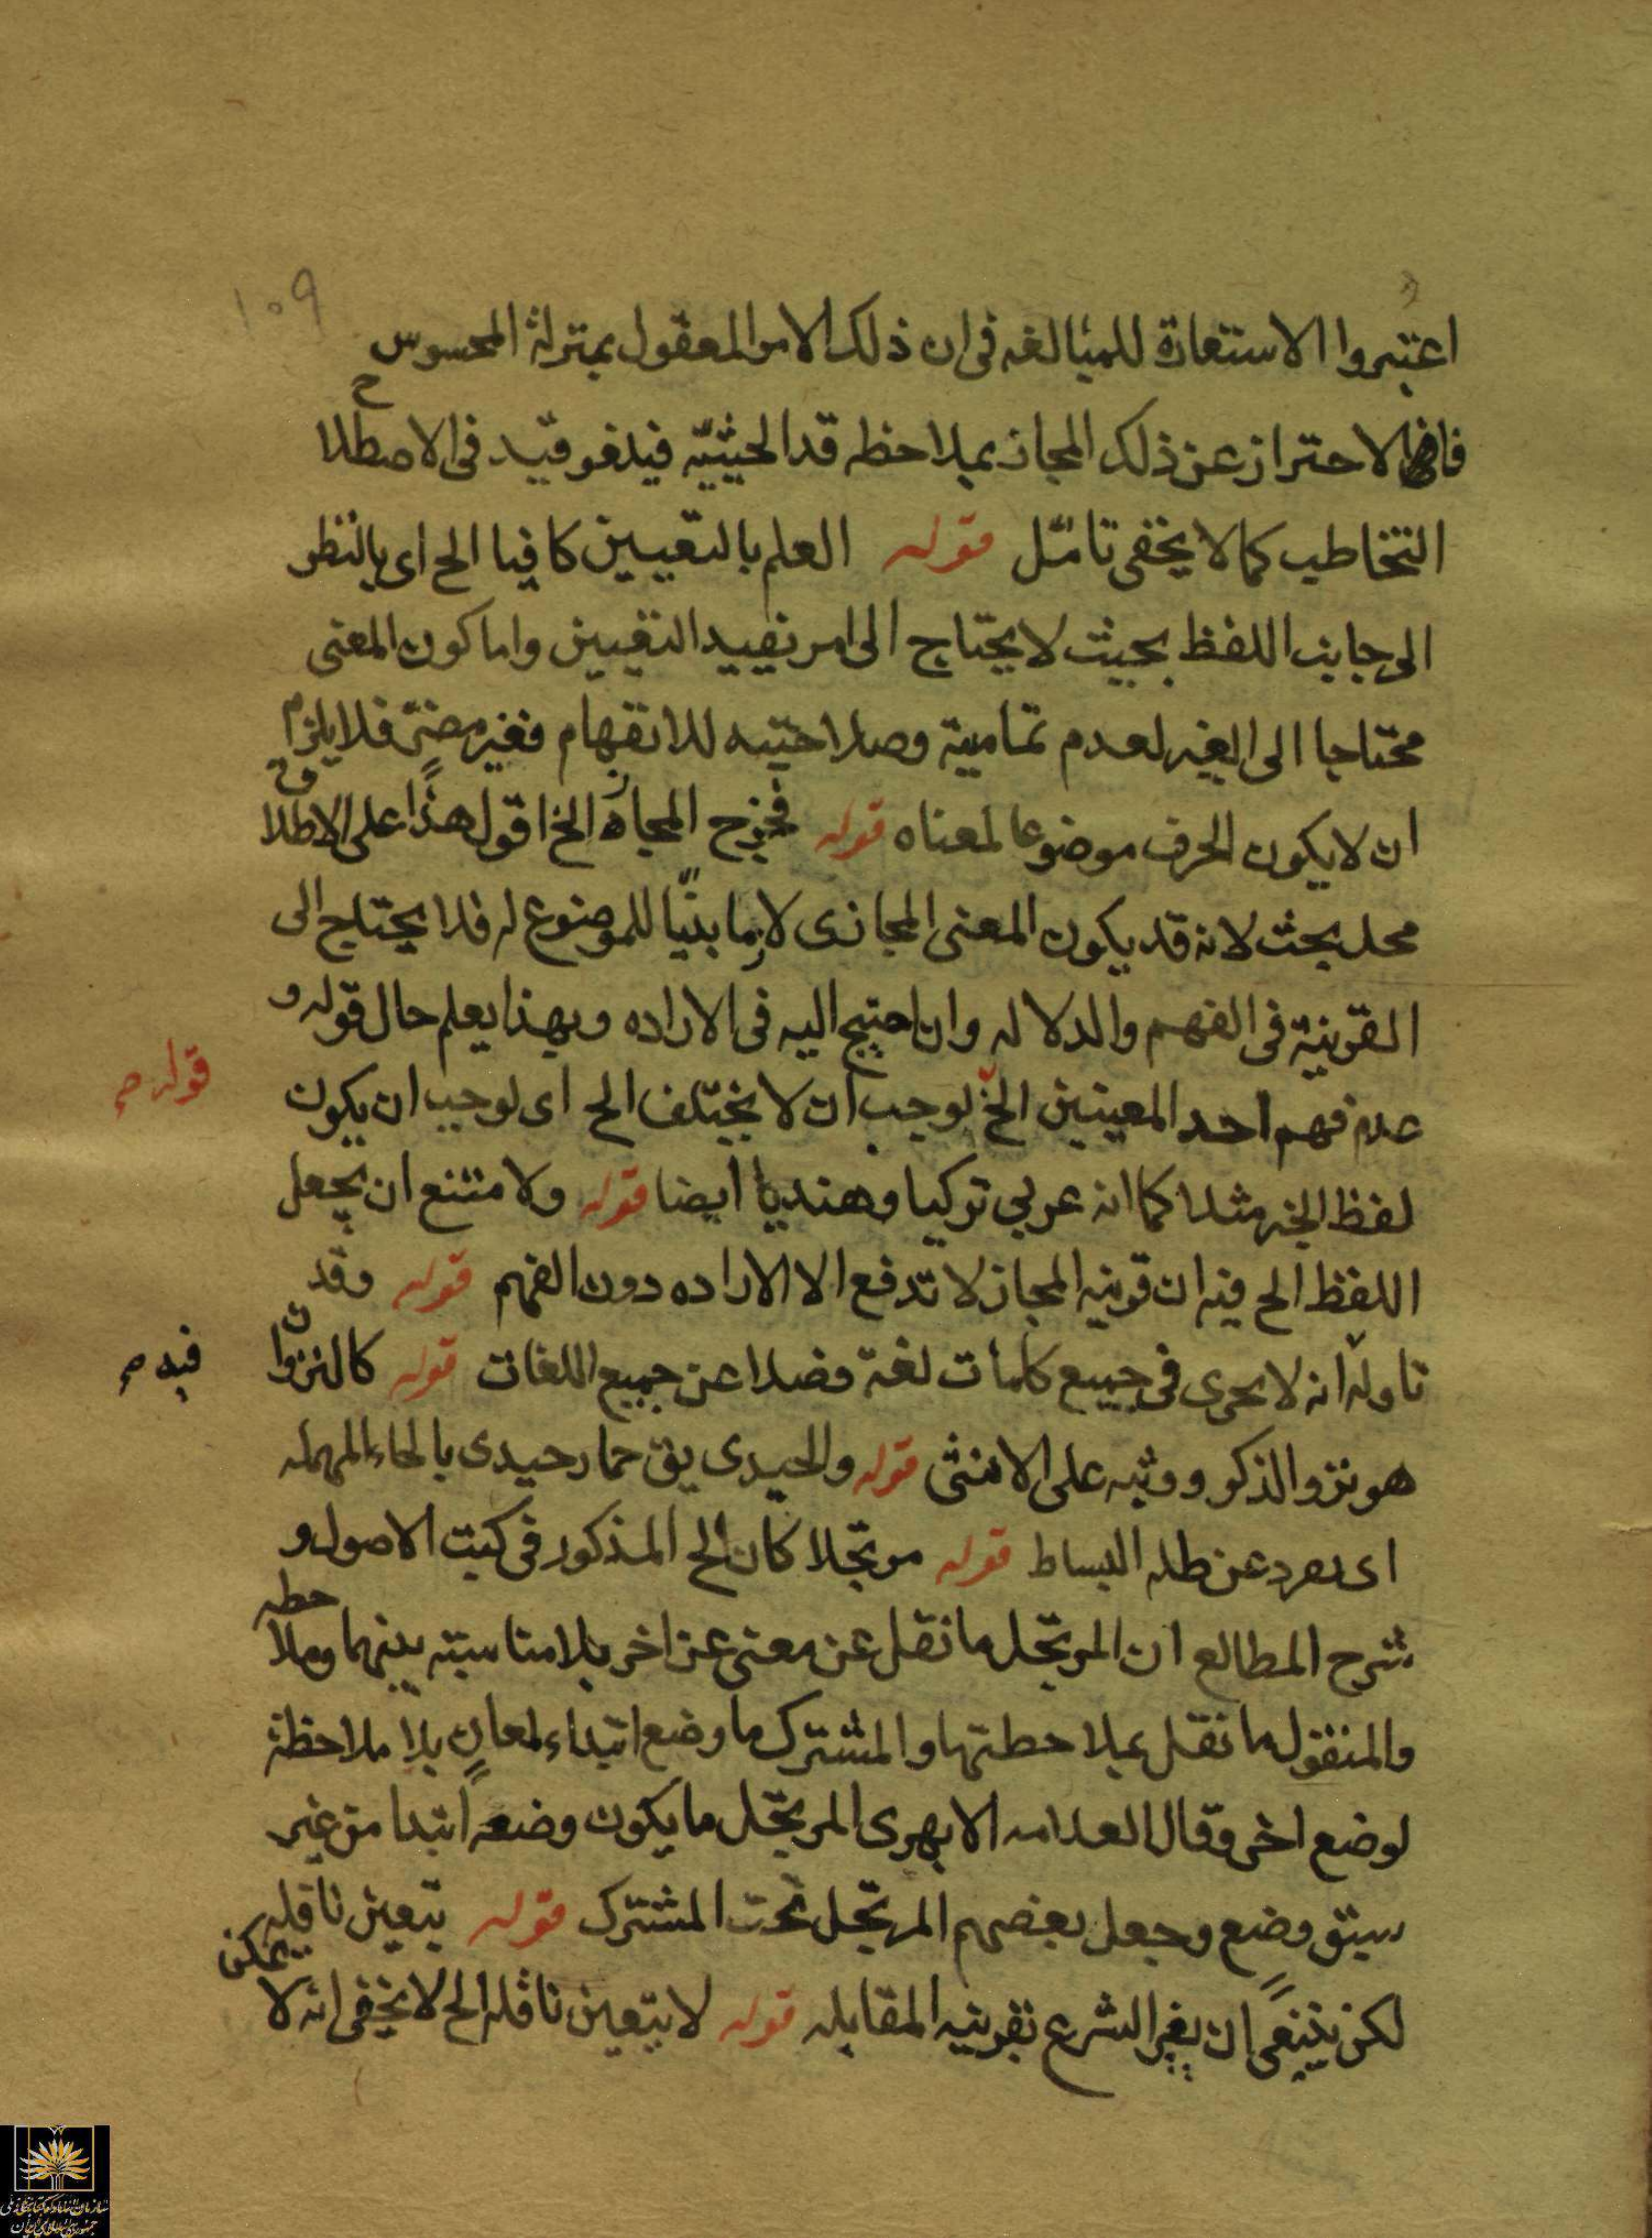 ١٠٩
اعتبروا الاستعارة للمبالغه فى ان ذلك الامر المعقول بمنزلة المحسوس
الاحتراز عن ذلك المجاز بملاحظه قد الحيثيّه فيلغو قيد فى الاصطلاح
التخاطب كما لا يخفى تامّل قوله العلم بالتعيين كافيا الخ اى بالنظر
الى جانب اللفظ بحيث لا يحتاج الى امر يفيد التعيين واما كون المعنى
محتاجا الى الغير لعدم تماميته وصلاحيته للانفهام فغير مضرّ فلا يلزم
ان لا يكون الحرف موضوعا لمعناه قوله فخرج المجاز الخ اقول هذا على الاطلاق
محل بحث لانه قد يكون المعنى المجازى لازما بيّنا للموضوع له فلا يحتاج الى
القرينة فى الفهم والدلاله وان احتيج اليه فى الاراده وبهذا يعلم حال قوله و
عدم فهم احد المعنيين الخ قوله صح لوجب ان لا يختلف الخ اى لوجب ان يكون
لفظ الخبر مثلا كما انه عربي تركيا وهنديا ايضا قوله ولامتنع ان يجعل
اللفظ الخ فيه ان قرينه المجاز لا تدفع الا الاراده دون الفهم قوله وقد
تاوله فيه صح انه لا يجرى فى جميع كلمات لغة فضلا عن جميع اللغات قوله كالنزوان
هو نزو الذكر ووثبه على الانثى قوله والحيدى يق حمار حيدى بالحاء المهمله
اى عن ظله قوله مرتجلا كان الخ المذكور فى كتب الاصول و
شرح المطالع ان المرتجل ما نقل عن معنى عن اخر بلا مناسبته بينهما وملاحظه
والمنقول ما نقل بملاحظتها والمشترك ما وضع ابتداء لمعان بلا ملاحظة
لوضع اخر وقال العلامه الابهرى المرتجل ما يكون وضعه ابتدا من غير
سبق وضع وجعل بعضهم المرتجل تحت المشترك قوله بتعين ناقله
لكن ينبغى ان يغير الشرع بقرينه المقابله قوله لا يتعين ناقله الخ لا يخفى انه لا يمكن